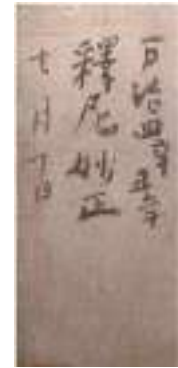 万治四辛丑年
釋尼妙正
七月十日